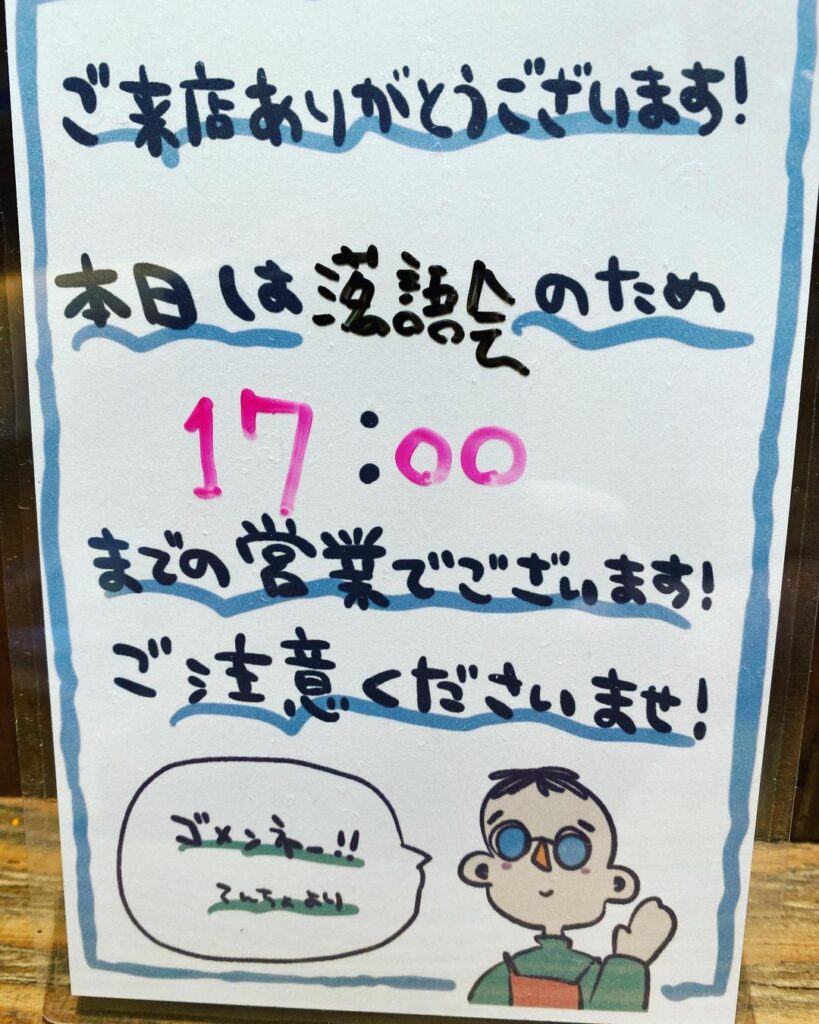 ご来店ありがとうございます!
本日は落語会のため
17:00
までの営業でございます!
ご注意くださいませ!
ゴメンネー!!
てんちょより